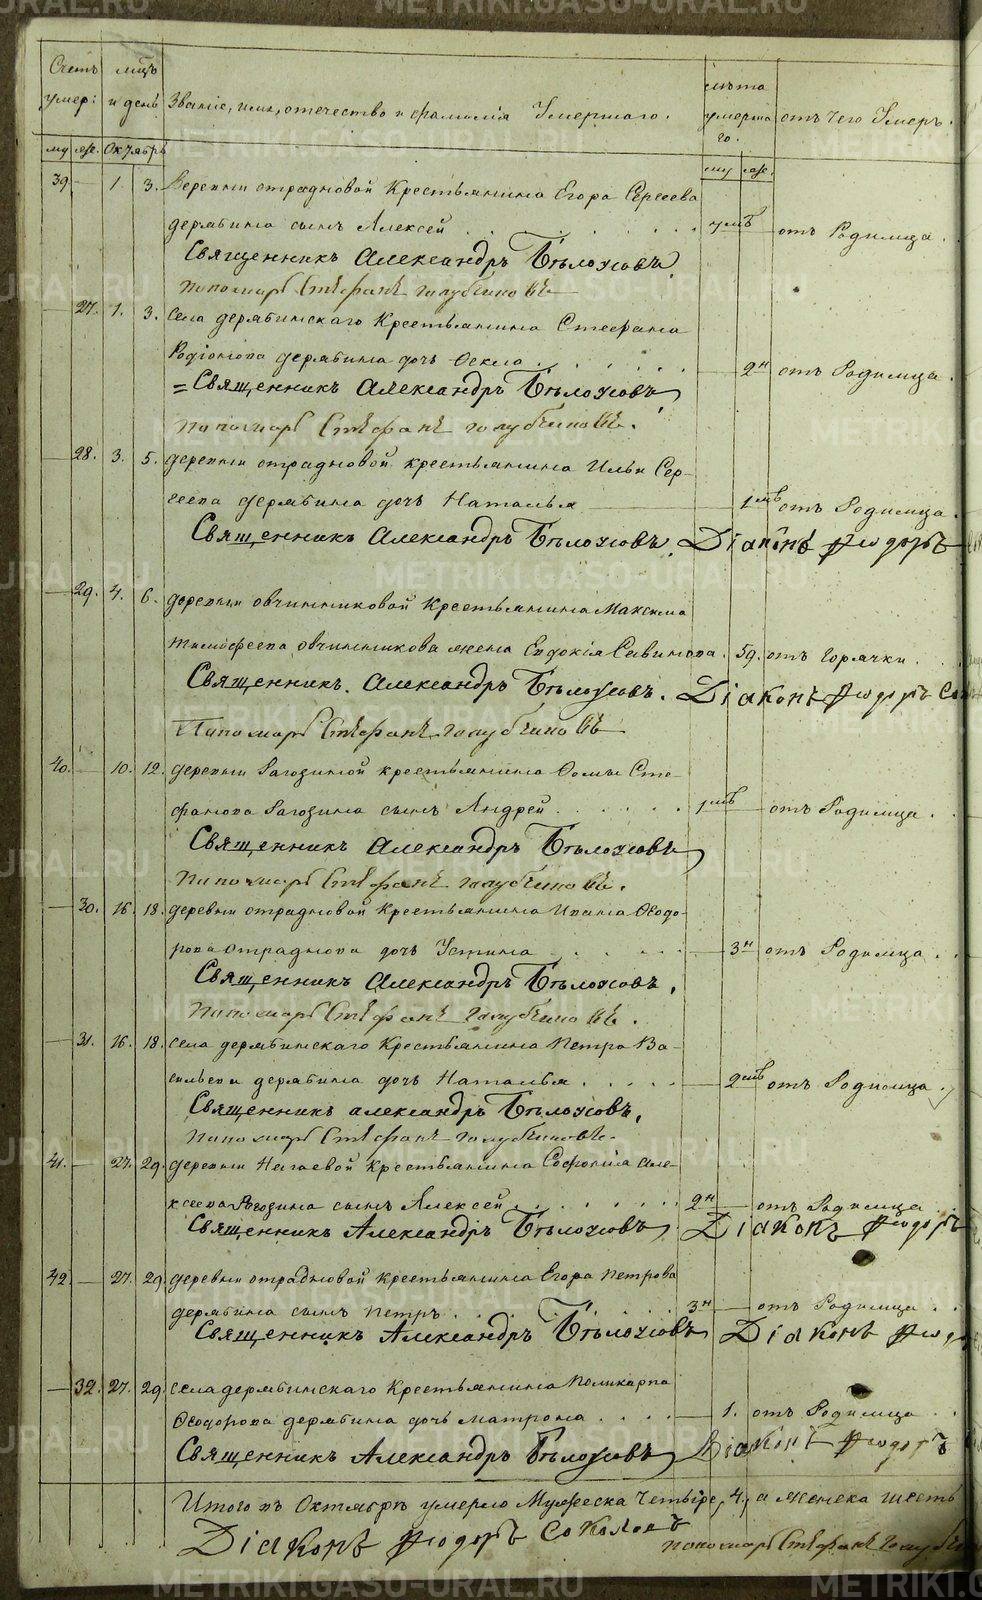 METRIKI.GASO-URAL.RU
Счетъ умер: мцъ и день Званіе, имя, отечество и фамилія Умершаго. лѣта умершаго. отъ чего Умеръ.
му же. Октябрь му же.
39. — 1. 3. Деревни отрадновой Крестьянина Егора Сергеева
дерябина сынъ Алексей . . . 7 мцъ — отъ Родимца.
Священникъ Александръ Бѣлоусовъ.
Пономарь Стефанъ Голубчиковъ
— 27. 1. 3. Села дерябинскаго Крестьянина Стефана
Родіонова дерябина дочь Фекла . . . — 2 н отъ Родимца.
Священникъ Александръ Бѣлоусовъ,
Пономарь Стефанъ Голубчиковъ.
— 28. 3. 5. деревни отрадновой крестьянина Ильи Сер-
геева дерябина дочь Наталья — 1 мцъ отъ Родимца.
Священникъ Александръ Бѣлоусовъ. Діаконъ Фіодоръ
— 29. 4. 6. деревни овчинниковой Крестьянина Максима
тимофеева овчинникова жена Евдокія Савинова. 59. отъ Горячки.
Священникъ. Александръ Бѣлоусовъ. Діаконъ Фіодоръ Со
Пономарь Стефанъ Голубчиковъ
40. — 10. 12. деревни Рагозиной крестьянина Фомы Сте-
фанова Рагозина сынъ Андрей . . . 1 мцъ — отъ Родимца.
Священникъ Александръ Бѣлоусовъ
Пономарь Стефанъ Голубчиковъ.
— 30. 16. 18. деревни отрадновой Крестьянина Ивана Феодо-
рова отраднова дочь Устина — 3 н отъ Родимца.
Священникъ Александръ Бѣлоусовъ.
Пономарь Стефанъ Голубчиковъ.
— 31. 16. 18. села дерябинскаго Крестьянина Петра Ва-
сильева дерябина дочь Наталья . . . — 2 мцъ отъ Родимца.
Священникъ александръ Бѣлоусовъ.
Пономарь Стефанъ Голубчиковъ.
41. — 27. 29. деревни Нагаевой Крестьянина Софонія Але-
ксеева Рагозина сынъ Алексей . . . 2 н — отъ Родимца
Священникъ Александръ Бѣлоусовъ Діаконъ Фіодоръ
42. — 27. 29. деревни отрадновой крестьянина Егора Петрова
дерябина сынъ Петръ . . . 3 н — отъ Родимца.
Священникъ Александръ Бѣлоусовъ Діаконъ Фіодо
— 32. 27. 29. села дерябинскаго Крестьянина Поликарпа
Феодорова дерябина дочь матрона . . . — 1. отъ Родимца
Священникъ Александръ Бѣлоусовъ Діаконъ Фіодоръ
Итого въ Октябрѣ умерло Мужеска четыре, 4, а женска шесть
Діаконъ Фіодоръ Соколовъ
пономарь Стефанъ Голубчи
METRIKI.GASO-URAL.RU